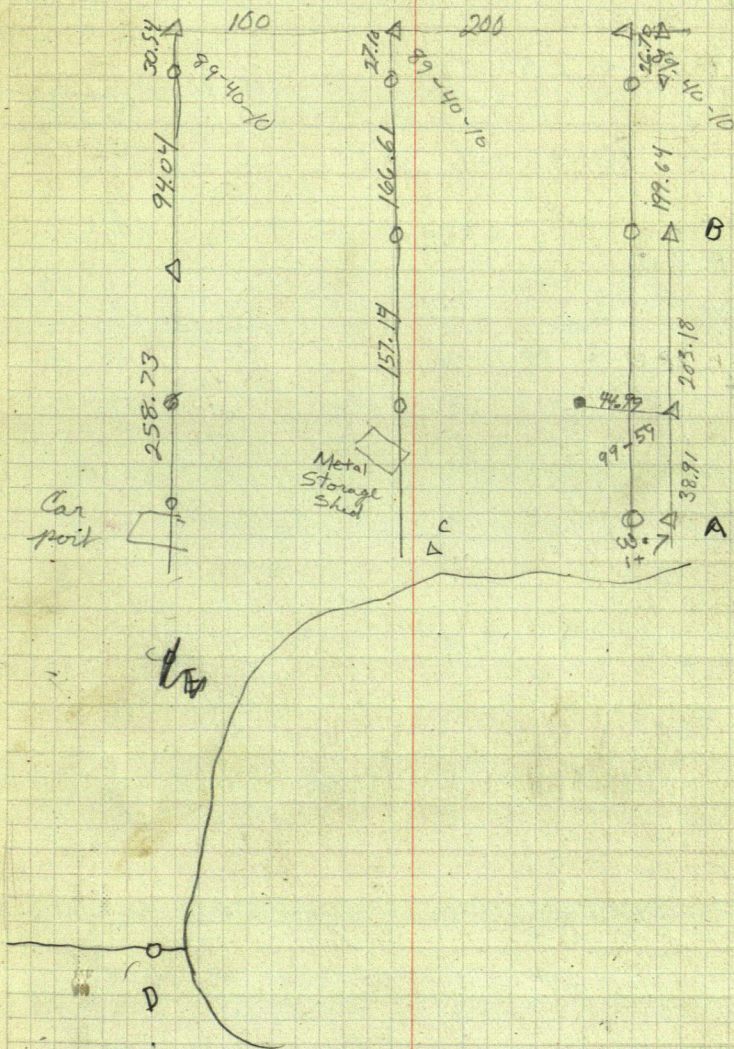 100
200
30.54
89-40-10
94.04
258.73
Car
port
27.18
89-40-10
166.61
157.14
Metal
Storage
Shed
C
26.70
199.64
B
203.18
44.99
99-59
38.91
A
D